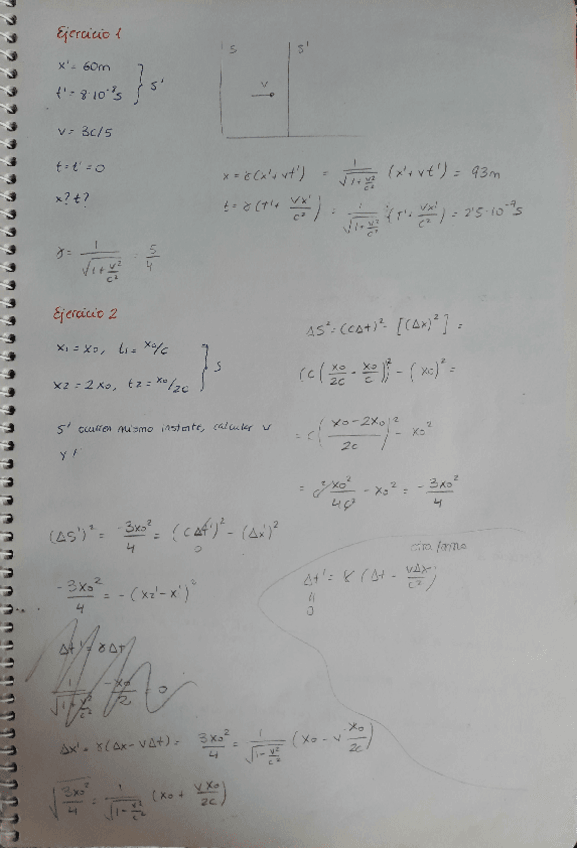 Ejercicio 1
x' = 60m
t' = 8·10⁻⁸s } S'
v = 3c/5
t = t' = 0
x? t?
γ = 1/√(1+v²/c²) = 5/4
S S'
v
x = γ(x' + vt') = 1/√(1+v²/c²) (x' + vt') = 93m
t = γ(t' + vx'/c²) = 1/√(1+v²/c²) (t' + vx'/c²) = 2'5·10⁻⁹s
Ejercicio 2
x₁ = x₀, t₁ = x₀/c
x₂ = 2x₀, t₂ = x₀/2c } S
S' ocurren mismo instante, calcular v
ΔS² = (cΔt)² - [(Δx)²] =
(c(x₀/2c - x₀/c))² - (x₀)² =
= c(x₀-2x₀/2c)² - x₀²
= c² x₀²/4c² - x₀² = -3x₀²/4
(ΔS')² = -3x₀²/4 = (cΔt')² - (Δx')²
0
-3x₀²/4 = -(x₂' - x')²
otra forma
Δt' = γ(Δt - vΔx/c²)
"
0
Δt' = γΔt
1/√(1-v²/c²) -x₀/2 = 0
Δx' = γ(Δx - vΔt) = 3x₀²/4 = 1/√(1-v²/c²) (x₀ - v x₀/2c)
√(3x₀²/4) = 1/√(1-v²/c²) (x₀ + vx₀/2c)